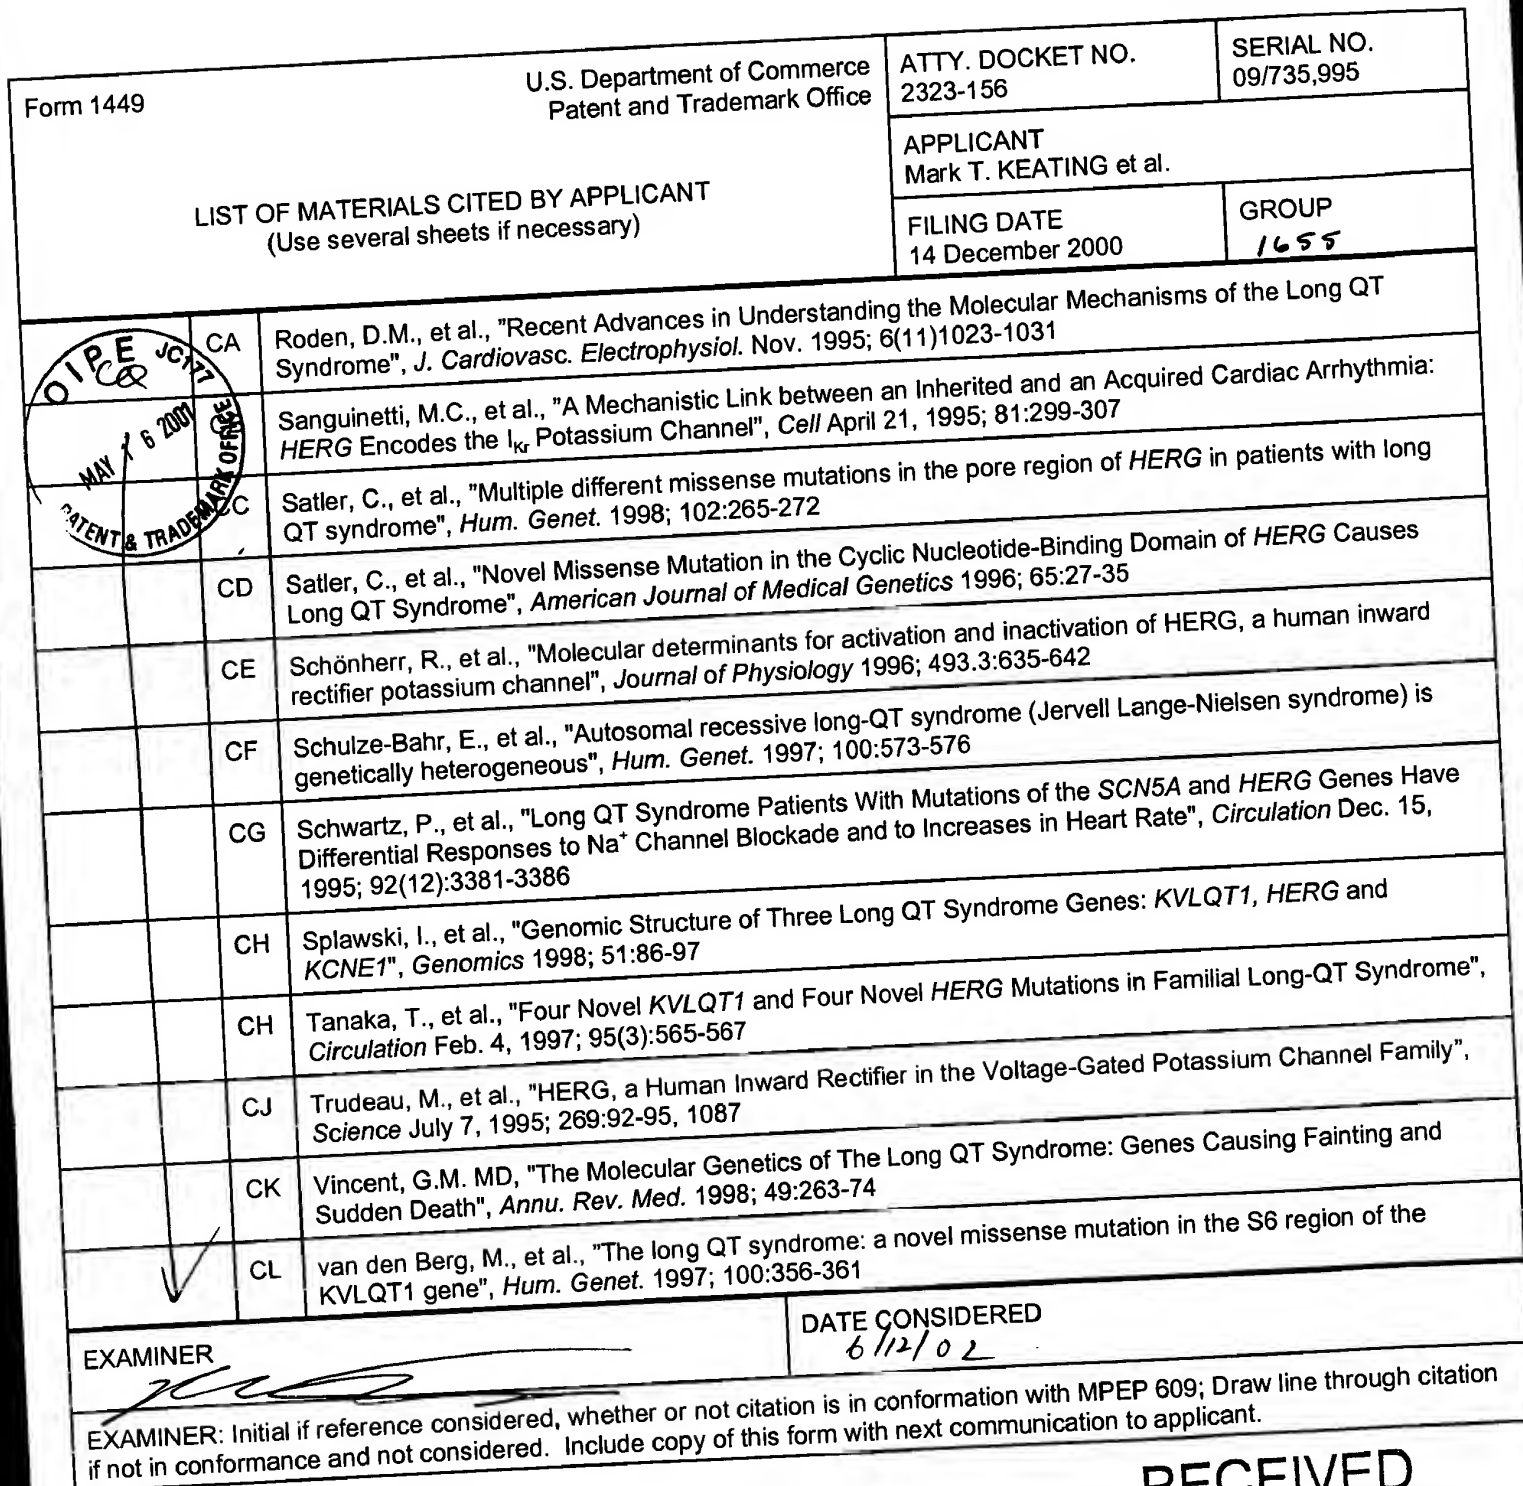 Form 1449
U.S. Department of Commerce
Patent and Trademark Office
LIST OF MATERIALS CITED BY APPLICANT
(Use several sheets if necessary)
ATTY. DOCKET NO.
2323-156
SERIAL NO.
09/735,995
APPLICANT
Mark T. KEATING et al.
FILING DATE
14 December 2000
GROUP
1655
OIPE JC177
MAY 16 2001
PATENT & TRADEMARK OFFICE
CA
Roden, D.M., et al., "Recent Advances in Understanding the Molecular Mechanisms of the Long QT
Syndrome", J. Cardiovasc. Electrophysiol. Nov. 1995; 6(11)1023-1031
Sanguinetti, M.C., et al., "A Mechanistic Link between an Inherited and an Acquired Cardiac Arrhythmia:
HERG Encodes the IKr Potassium Channel", Cell April 21, 1995; 81:299-307
CC
Satler, C., et al., "Multiple different missense mutations in the pore region of HERG in patients with long
QT syndrome", Hum. Genet. 1998; 102:265-272
CD
Satler, C., et al., "Novel Missense Mutation in the Cyclic Nucleotide-Binding Domain of HERG Causes
Long QT Syndrome", American Journal of Medical Genetics 1996; 65:27-35
CE
Schönherr, R., et al., "Molecular determinants for activation and inactivation of HERG, a human inward
rectifier potassium channel", Journal of Physiology 1996; 493.3:635-642
CF
Schulze-Bahr, E., et al., "Autosomal recessive long-QT syndrome (Jervell Lange-Nielsen syndrome) is
genetically heterogeneous", Hum. Genet. 1997; 100:573-576
CG
Schwartz, P., et al., "Long QT Syndrome Patients With Mutations of the SCN5A and HERG Genes Have
Differential Responses to Na+ Channel Blockade and to Increases in Heart Rate", Circulation Dec. 15,
1995; 92(12):3381-3386
CH
Splawski, I., et al., "Genomic Structure of Three Long QT Syndrome Genes: KVLQT1, HERG and
KCNE1", Genomics 1998; 51:86-97
CH
Tanaka, T., et al., "Four Novel KVLQT1 and Four Novel HERG Mutations in Familial Long-QT Syndrome",
Circulation Feb. 4, 1997; 95(3):565-567
CJ
Trudeau, M., et al., "HERG, a Human Inward Rectifier in the Voltage-Gated Potassium Channel Family",
Science July 7, 1995; 269:92-95, 1087
CK
Vincent, G.M. MD, "The Molecular Genetics of The Long QT Syndrome: Genes Causing Fainting and
Sudden Death", Annu. Rev. Med. 1998; 49:263-74
CL
van den Berg, M., et al., "The long QT syndrome: a novel missense mutation in the S6 region of the
KVLQT1 gene", Hum. Genet. 1997; 100:356-361
EXAMINER
DATE CONSIDERED
6/12/02
EXAMINER: Initial if reference considered, whether or not citation is in conformation with MPEP 609; Draw line through citation
if not in conformance and not considered. Include copy of this form with next communication to applicant.
RECEIVED